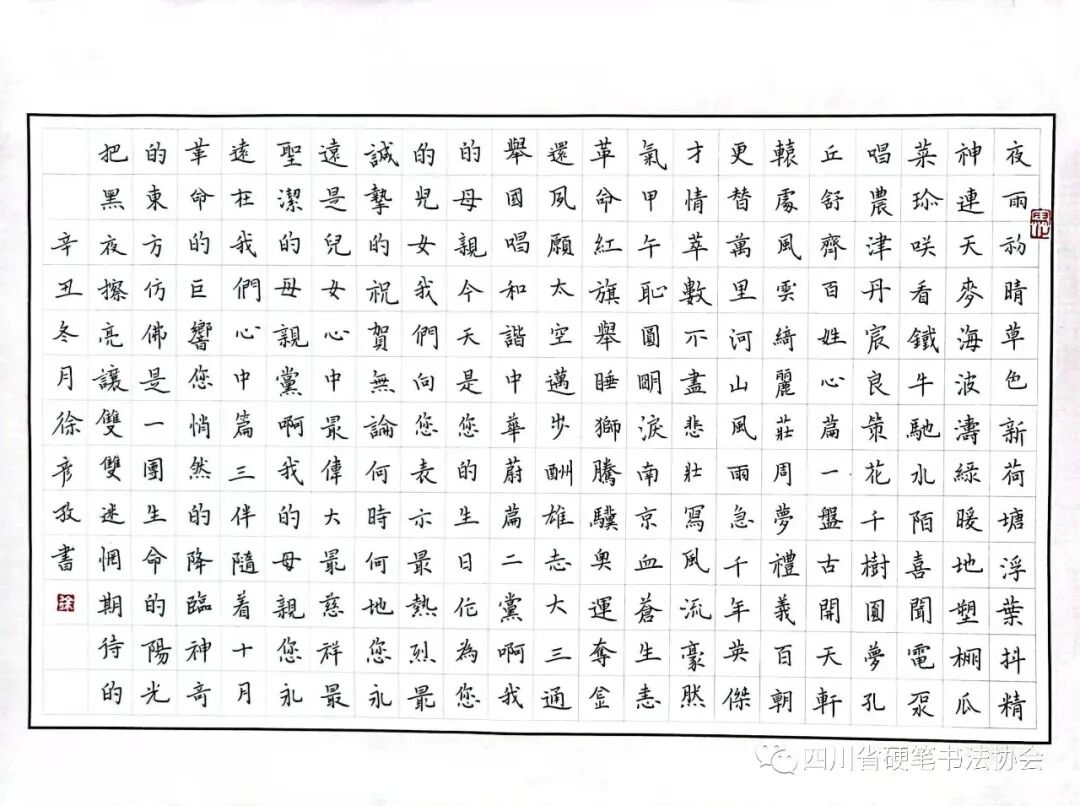 夜雨初晴草色新荷塘浮葉抖精
神連天麥海波濤綠暖地塑棚瓜
菜珎咲看鐵牛馳水陌喜聞電泵
唱農津丹宸良策花千樹圓夢孔
丘舒齊百姓心篇一盤古開天軒
轅處風雲綺麗莊周夢禮義百朝
更替萬里河山風雨急千年英傑
才情萃數不盡悲壯寫風流豪然
氣甲午恥圓明淚南京血蒼生恚
革命紅旗舉睡獅騰驥奧運奪金
還夙願太空邁步酬雄志大三通
舉國唱和諧中華蔚篇二黨啊我
的母親今天是您的生日佗為您
的兒女我們向您表示最熱烈最
誠摯的祝賀無論何時何地您永
遠是兒女心中最偉大最慈祥最
聖潔的母親黨啊我的母親您永
遠在我們心中篇三伴隨着十月
革命的巨響您悄然的降臨神奇
的東方仿佛是一團生命的陽光
把黑夜擦亮讓雙雙迷惘期待的
辛丑冬月徐彥孜書
四川省硬笔书法协会